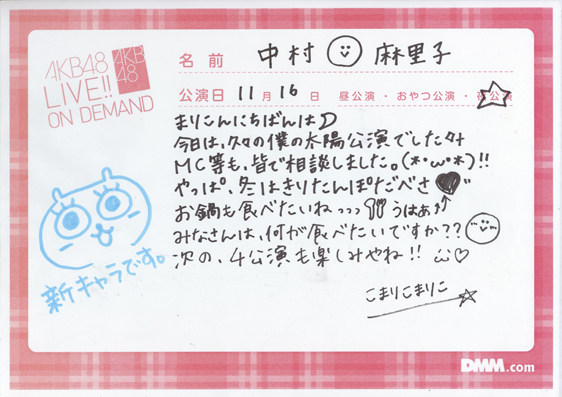 AKB48
LIVE!!
ON DEMAND
AKB
48
名前 中村 麻里子
公演日 11月16日 昼公演・おやつ公演・夜公演
まりこんにちばんは
今日は、久々の僕の太陽公演でした
MC等も、皆で相談しました。(*・ω・*)!!
やっぱ、冬はきりたんぽだべさ
お鍋も食べたいねっっっ うはぁ↑↑
みなさんは、何が食べたいですか??
次の、4公演も楽しみやね!!
こまりこまりこ
新キャラです。
DMM.com